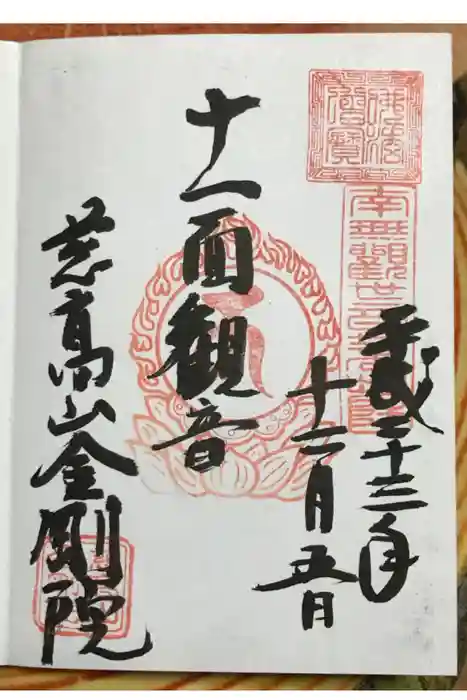 平成二十三年
十一月五日
十一面観音
慈高山金剛院
佛法僧寶
南無觀世音菩薩